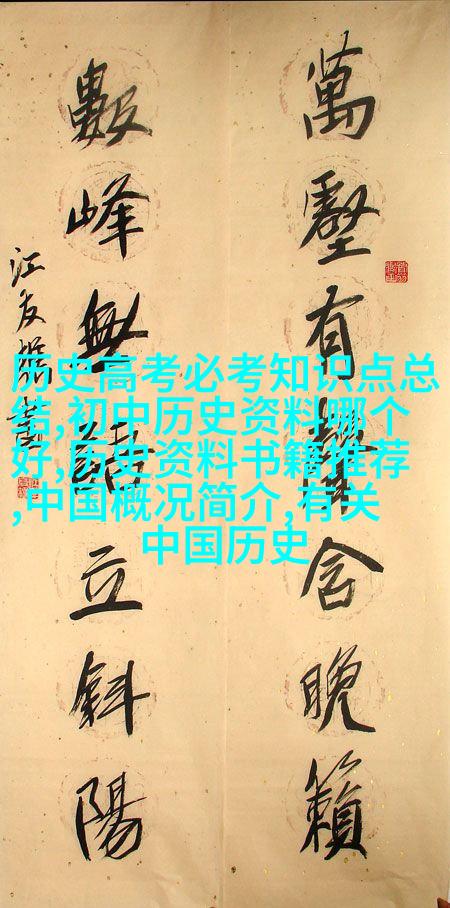 萬壑有聲含晚籟
數峰無語立斜陽
江友樵書
历史高考必考知识点总
结,初中历史资料哪个
好,历史资料书籍推荐
,中国概况简介,有关
中国历史